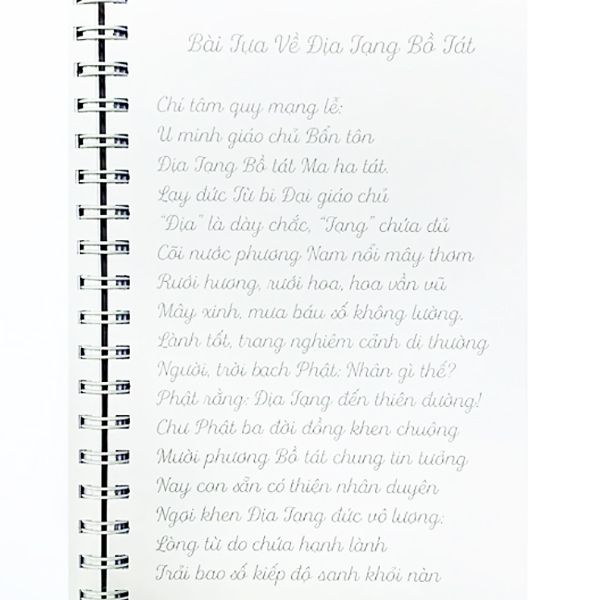 Bài Tựa Về Địa Tạng Bồ Tát
Chí tâm quy mạng lễ:
U minh giáo chủ Bổn tôn
Địa Tạng Bồ tát Ma ha tát.
Lạy đức Từ bi Đại giáo chủ
“Địa” là dày chắc, “Tạng” chứa đủ
Cõi nước phương Nam nổi mây thơm
Rưới hương, rưới hoa, hoa vần vũ
Mây xinh, mưa báu số không lường.
Lành tốt, trang nghiêm cảnh dị thường
Người, trời bạch Phật: Nhân gì thế?
Phật rằng: Địa Tạng đến thiên đường!
Chư Phật ba đời đồng khen chuộng
Mười phương Bồ tát chung tin tưởng
Nay con sẵn có thiện nhân duyên
Ngợi khen Địa Tạng đức vô lượng:
Lòng từ do chứa hạnh lành
Trải bao số kiếp độ sanh khỏi nàn